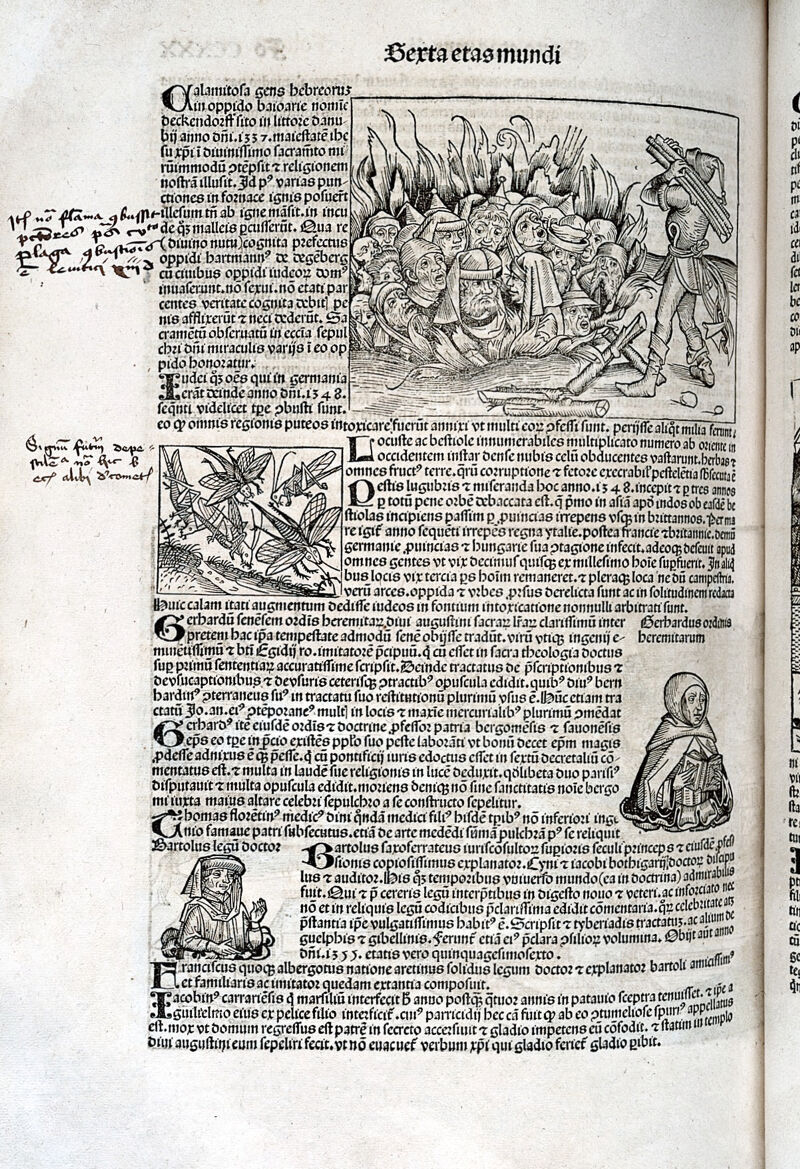 Sexta etas mundi
Calamitosa gens hebreorũ
in oppido baioarie nomĩe
deckendorff sito in littore danu
bij anno dñi .1337. maiestatẽ ihe
su xp̃i ĩ diuinissimo sacramẽto mi
rũimmodũ ꝯtẽpsit ⁊ religionem
nostrã illusit. Id pꝰ varias pun-
ctiones in fornace ignis posuert̃
illesum tñ ab igne mãsit. in incu
de q̃ malleis ꝑcusserũt. Qua re
(diuino nutu) cognita prefectus
oppidi hartmannꝰ de degẽberg
cũ ciuibus oppidi iudeorũ domꝰ
inuaserunt. no sexui. nõ etati par
centes veritate cognita debitꝭ pe
nis afflixerũt ⁊ neci dederũt. Sa
cramẽtũ obseruatũ in ecc̃ia sepul
chri dñi miraculis varijs ĩ eo op
pido honoratur.
Iudei q̃ oẽs qui in germania
erãt deinde anno dñi .1348.
seq̃nti videlicet tp̃e ꝯbusti sunt.
eo ꝙ omnis regionis puteos intoxicare fuerũt annixi vt multi eorꝝ ꝯfessi sunt. perijsse aliq̃t milia ferunt.
Locuste ac bestiole innumerabiles multiplicato numero ab oriente in
occidentem instar dense nubis celũ obducentes vastarunt. herbas ⁊
omnes fructꝰ terre. q̃rũ corruptione ⁊ fetore execrabilꝭ pestelẽtia sb̃secuta ẽ
Pestis lugubris ⁊ miseranda hoc anno .1348. incepit ⁊ ꝑ tres annos
ꝑ totũ pene orbẽ debaccata est. q̃ pͥmo in asiã apđ indos ob easdẽ be
stiolas incipiens passim ꝑ ꝓuincias irrepens vsqꝫ in brittannos. Per ma
re igit̃ anno sequẽti irrepẽs regna ytalie. postea francie ⁊ britannie. demũ
germanie ꝓuincias ⁊ hungarie sua ꝯtagione infecit. adeoqꝫ deseuit apud
omnes gentes vt vix decimus quisqꝫ ex millesimo hoĩe supfuerit. In aliq̃
bus locis vix tercia ꝑs hoĩm remaneret. ⁊ pleraqꝫ loca ne dũ campestria.
verũ arces. oppida ⁊ vrbes ꝓrsus derelicta sunt ac in solitudinem redacta
Huic calamitati augmentum dedisse iudeos in fontium intoxicatione nonnulli arbitrati sunt.
Gerhardus ordinis
heremitarum
Gerhardũ senẽsem ordĩs heremitarꝝ diui augustini sacrarꝝ l̃rarꝝ clarissimũ inter
pretem hac ip̃a tempestate admodũ senẽ obijsse tradũt. virũ vtiqꝫ ingenij e-
minẽtissimũ ⁊ btĩ Egidij ro. imitatorẽ p̃cipuũ. q̃ cũ esset in sacra theologia doctus
sup primũ sententiarꝝ accuratissime scripsit. Deinde tractatus de p̃scriptionibus ⁊
de vsucaptionibus ⁊ de vsuris ceterisqꝫ ꝯtractibꝰ opuscula edidit. quibꝰ diuꝰ bern
hardinꝰ ꝯterraneus suꝰ in tractatu suo restitutionũ plurimũ vsus ẽ. Hũc etiam tra
ctatũ Jo. an. eiꝰ ꝯtẽporaneꝰ multꝭ in locis ⁊ maxĩe mercurialibꝰ plurimũ ꝯmẽdat
Gerhardꝰ itẽ eiusdẽ ordĩs ⁊ doctrine ꝓfessor patria bergomẽsis ⁊ sauonẽsis
ep̃s eo tp̃e in p̃cio existẽs pp̃lo suo peste laborãti vt bonũ decet ep̃m magis
ꝓdesse adnixus ẽ q̃ꝫ p̃esse. q̃ cũ pontificij iuris edoctus esset in sextũ decretaliũ cõ-
mẽtatus est. ⁊ multa in laudẽ sue religionis in lucẽ deduxit. q̃dlibeta duo parisiꝰ
disputauit ⁊ multa opuscula edidit. moriens deniqꝫ nõ sine sanctitatis noĩe bergo
mi iuxta maius altare celebri sepulchro a se constructo sepelitur.
Thomas florẽtinꝰ medicꝰ dini q̃ndã medici filiꝰ hisdẽ tꝑibꝰ nõ inferiori inge
nio famaue patri subsecutus. etiã de arte medẽdi sũmã pulchrã pꝰ se reliquit
Bartolus legũ doctor
Bartolus saxoferrateus iuriscõsultorꝝ supioris seculi princeps ⁊ eiusdẽ ꝓfes
sionis copiosissimus explanator. Cyni ⁊ iacobi bothigarij doctorꝝ discipu
lus ⁊ auditor. His q̃ temporibus vniuerso mundo (ea in doctrina) admirabilis
fuit. Qui ⁊ p̃ ceteris legũ interp̃tibus in digesto nouo ⁊ veteri. ac inforciato nec
nõ et in reliquis legũ codicibus p̃clarissima edidit cõmentaria. q̃rꝝ celebritate atqꝫ
p̃stantia ip̃e vulgatissimus habitꝰ ẽ. Scripsit ⁊ tyberiadis tractatuꝫ. ac alium de
guelphis ⁊ gibellinis. Ferunt̃ etiã eiꝰ p̃clara ꝯsiliorꝝ volumina. Obijt aũt anno
dñi .1355. etatis vero quinquagesimosexto.
Franciscus quoqꝫ albergotus natione aretinus solidus legum doctor ⁊ explanator bartoli amicissimꝰ
et familiaris ac imitator quedam extantia composuit.
Iacobinꝰ carrariẽsis q̃ marsiliũ interfecit h̃ anno postq̃ꝫ q̃tuor annis in patauio sceptra tenuisset. ⁊ ip̃e a
guilielmo eius ex pelice filio interficit̃. cuiꝰ parricidij hec cã fuit ꝙ ab eo ꝯtumeliose spurꝰ appellatus
est. mox vt domum regressus est patrẽ in secreto accersiuit ⁊ gladio impetens eũ cõfodit. ⁊ statim in templo
diui augustini eum sepeliri fecit. vt nõ euacuet̃ verbum xp̃i qui gladio feriet̃ gladio ꝑibit.